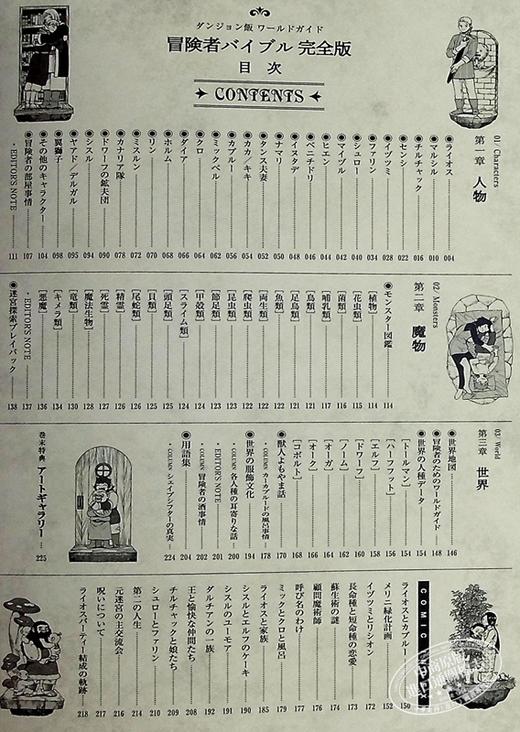 ダンジョン飯 ワールドガイド
冒険者バイブル 完全版
目次
CONTENTS
01/ Characters
第一章 人物
◉ライオス 004
◉マルシル 010
◉チルチャック 016
◉センシ 022
◉イヅツミ 028
◉ファリン 034
◉シュロー 040
◉マイヅル 042
◉ヒエン 044
◉ベニチドリ 046
◉イヌタデ 048
◉ナマリ 050
◉タンス夫妻 052
◉カカ／キキ 054
◉カブルー 056
◉ミックベル 062
◉クロ 064
◉ダイア 066
◉ホルム 068
◉リン 070
◉ミスルン 072
◉カナリア隊 078
◉ドワーフの鉱夫団 090
◉シスル 094
◉ヤアド／デルガル 095
◉翼獅子 098
◉その他のキャラクター 104
◉冒険者の部屋事情 107
・EDITOR'S NOTE 111
02/ Monsters
第二章 魔物
◉モンスター図鑑 114
［植物］ 114
［花虫類］ 116
［菌類］ 117
［哺乳類］ 118
［鳥類］ 120
［足鳥類］ 121
［魚類］ 121
［両生類］ 122
［爬虫類］ 122
［昆虫類］ 122
［節足類］ 123
［甲殻類］ 124
［スライム類］ 124
［頭足類］ 125
［貝類］ 125
［尾蛇類］ 126
［精霊］ 126
［死霊］ 127
［魔法生物］ 128
［竜類］ 130
［キメラ類］ 134
［悪魔］ 136
・EDITOR'S NOTE 137
◉迷宮探索プレイバック 138
03/ World
第三章 世界
◉世界地図 146
◉冒険者のためのワールドガイド 148
◉世界の人種データ
［トールマン］
［ハーフフット］
［エルフ］
［ドワーフ］
［ノーム］
［オーガ］
［オーク］
［コボルト］ 168
◉獣人よもやま話 170
・COLUMN カーカブルードの風呂事情 178
◉世界の服飾文化 194
・COLUMN 各人種の耳寄りな話 200
・EDITOR'S NOTE 201
・COLUMN 冒険者の酒事情 202
◉用語集 204
・COLUMN シェイプシフターの真実 224
巻末特典 アートギャラリー 225
COMIC
ライオスとカブルー 150
メリニ緑化計画 152
イヅツミとリシオン 156
長命種と短命種の恋愛 172
蘇生術の謎 174
顧問魔術師 176
呼び名のわけ 177
ミックとクロと風呂 179
ライオスと家族 185
シスルとエルフのケーキ 190
シスルのユーモア 191
ダルチアンの一族 192
王と愉快な仲間たち 208
チルチャックと娘たち 209
シュローとファリン 210
第二の人生 214
元迷宮の主交流会 216
呪いについて 217
ライオスパーティー結成の軌跡 218